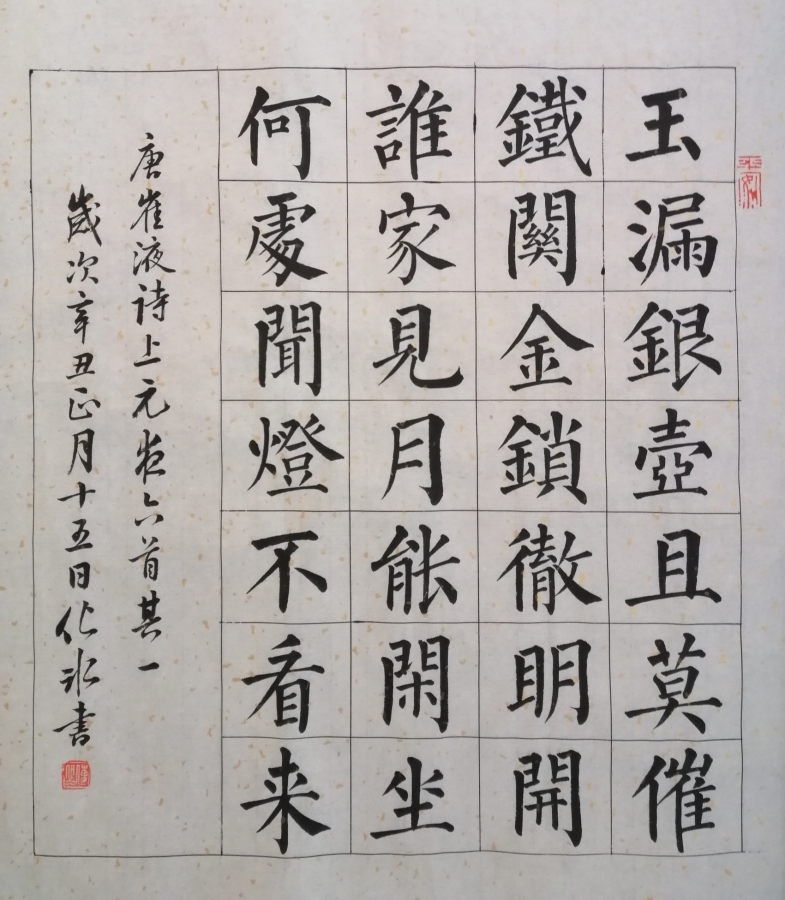 玉漏銀壺且莫催
鐵關金鎖徹明開
誰家見月能閑坐
何處聞燈不看来
唐崔液诗上元夜六首其一
歲次辛丑正月十五日化冰書